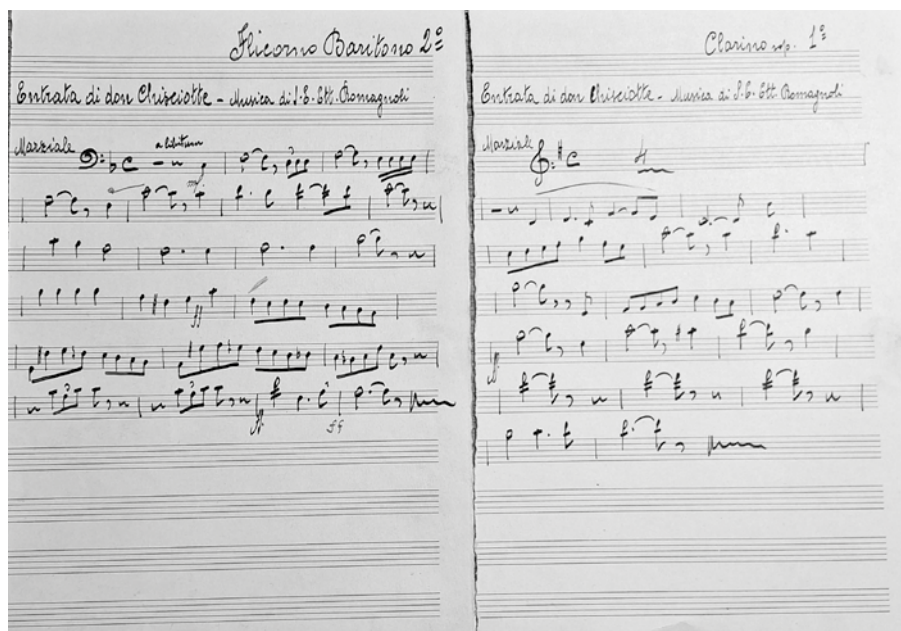 Flicorno Baritono 2º
Entrata di don Chisciotte - Musica di S. E. Ett. Romagnoli
Marziale
a libitum
ff
ff
ff
Clarino sop. 1º
Entrata di don Chisciotte - Musica di S. E. Ett. Romagnoli
Marziale
4
ff